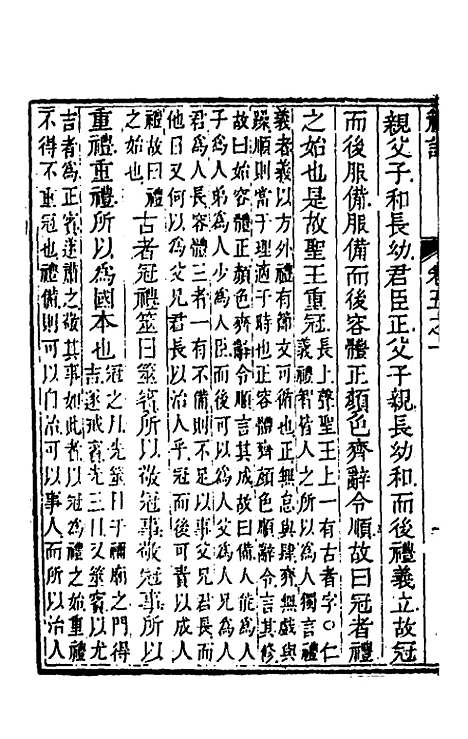 禮記　卷五之一
親父子和長幼君臣正父子親長幼和而後禮義立故冠
而後服備服備而後容體正顏色齊辭令順故曰冠者禮
之始也是故聖王重冠長上聲聖王上一有古者字○仁
義禮智皆人之所以為人獨言禮
義者義以方外禮有節文可循也正無怠與肆齊無戲與
躁順則當于理適于時也容體齊顏色順辭令言其修
故曰始容體正顏色齊辭令順言其成故曰備人能為人
子為人弟為人少為人臣而後可以為人父為人兄為人
君為人長容體三者一有不備則不足以事父兄君長而
他日又何以為父兄君長以治人乎冠而後可責以成人
禮故曰禮
之始也古者冠禮筮日筮賓所以敬冠事敬冠事所以
重禮重禮所以為國本也冠之月先筮日于禰廟之門得
吉遂戒賓先三日又筮賓以尤
吉者為正賓遂肅之敬其事如此者以冠為禮之始重禮
不得不重冠也禮備則可以自治可以事人而所以治人